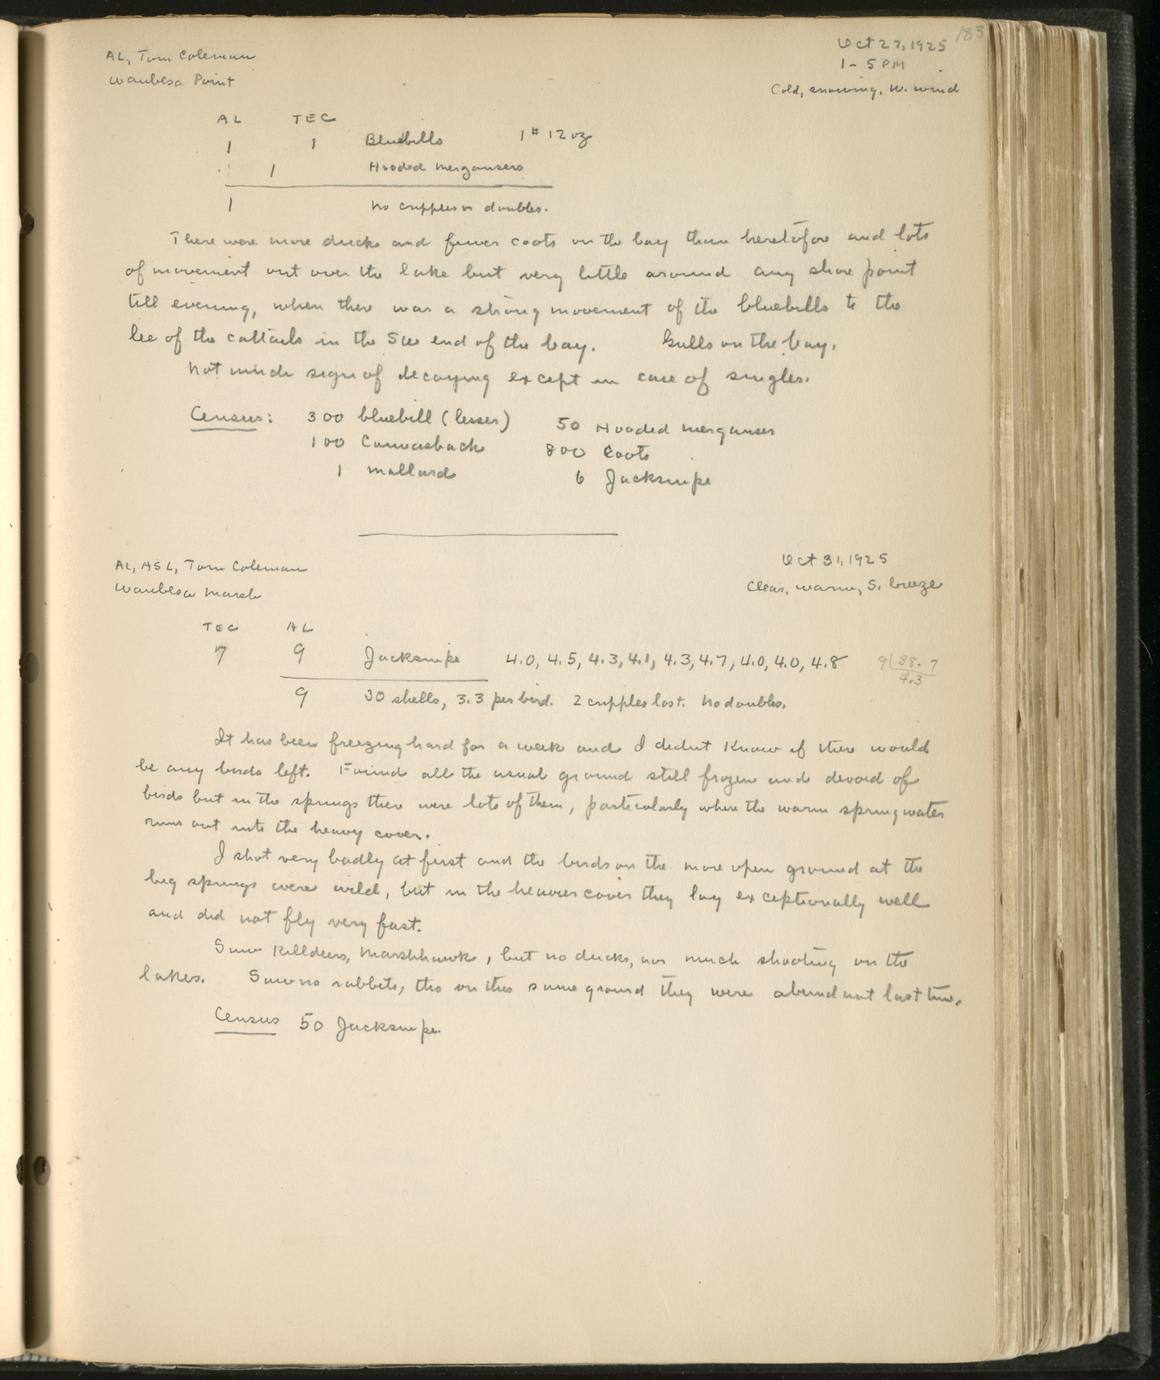 183
AL, Tom Coleman
Waubesa Point
Oct 27, 1925
1-5 PM
Cold, snowing, W. wind
AL TEC
1 1 Bluebills 1# 12 oz
1 Hooded Mergansers
1 No cripples or doubles.
There were more ducks and fewer coots on the bay than heretofore and lots
of movement out over the lake but very little around any shore point
till evening, when there was a strong movement of the bluebills to the
lee of the cattails in the SW end of the bay. Gulls on the bay.
Not much sign of decoying except in case of singles.
Census: 300 bluebill (lesser) 50 Hooded Merganser
100 Canvasback 800 Coots
1 mallard 6 Jacksnipe
AL, ASL, Tom Coleman
Waubesa Marsh
Oct 31, 1925
Clear, warm, S. breeze
TEC AL
7 9 Jacksnipe 4.0, 4.5, 4.3, 4.1, 4.3, 4.7, 4.0, 4.0, 4.8 9|38.7
4.3
9 30 shells, 3.3 per bird. 2 cripples lost. No doubles.
It has been freezing hard for a week and I didnt know if there would
be any birds left. Found all the usual ground still frozen and devoid of
birds but in the springs there were lots of them, particularly where the warm spring water
runs out into the heavy cover.
I shot very badly at first and the birds on the more open ground at the
big springs were wild, but in the heavier cover they lay exceptionally well
and did not fly very fast.
Saw Killdeers, Marshhawk, but no ducks, nor much shooting on the
lakes. Saw no rabbits, tho on this same ground they were abundant last time.
Census 50 Jacksnipe.